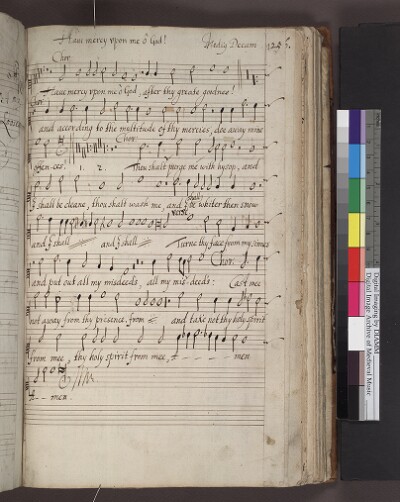 Haue mercy vpon me ô God! Medij Decani
Chor.
Haue mercy vpon me ô God, after thy greate goodnes!
Chor:
and according to the multitude of thy mercies, doe away mine
Chor.
offen-ces. 1. 2. Thou shalt purge me with hysop, and
I shall be cleane, thou shalt wash me, and I shall be whiter then snow
and I shall and I shall verse Turne thy face from my sinnes
Chor:
and put out all my misdeeds, all my mis-deeds: Cast mee
not away from thy presence, from and take not thy holy spirit
from mee, thy holy spirit from mee, A - - - - men
A - - men.
Digital Imaging by DIAMM
Digital Image Archive of Medieval Music